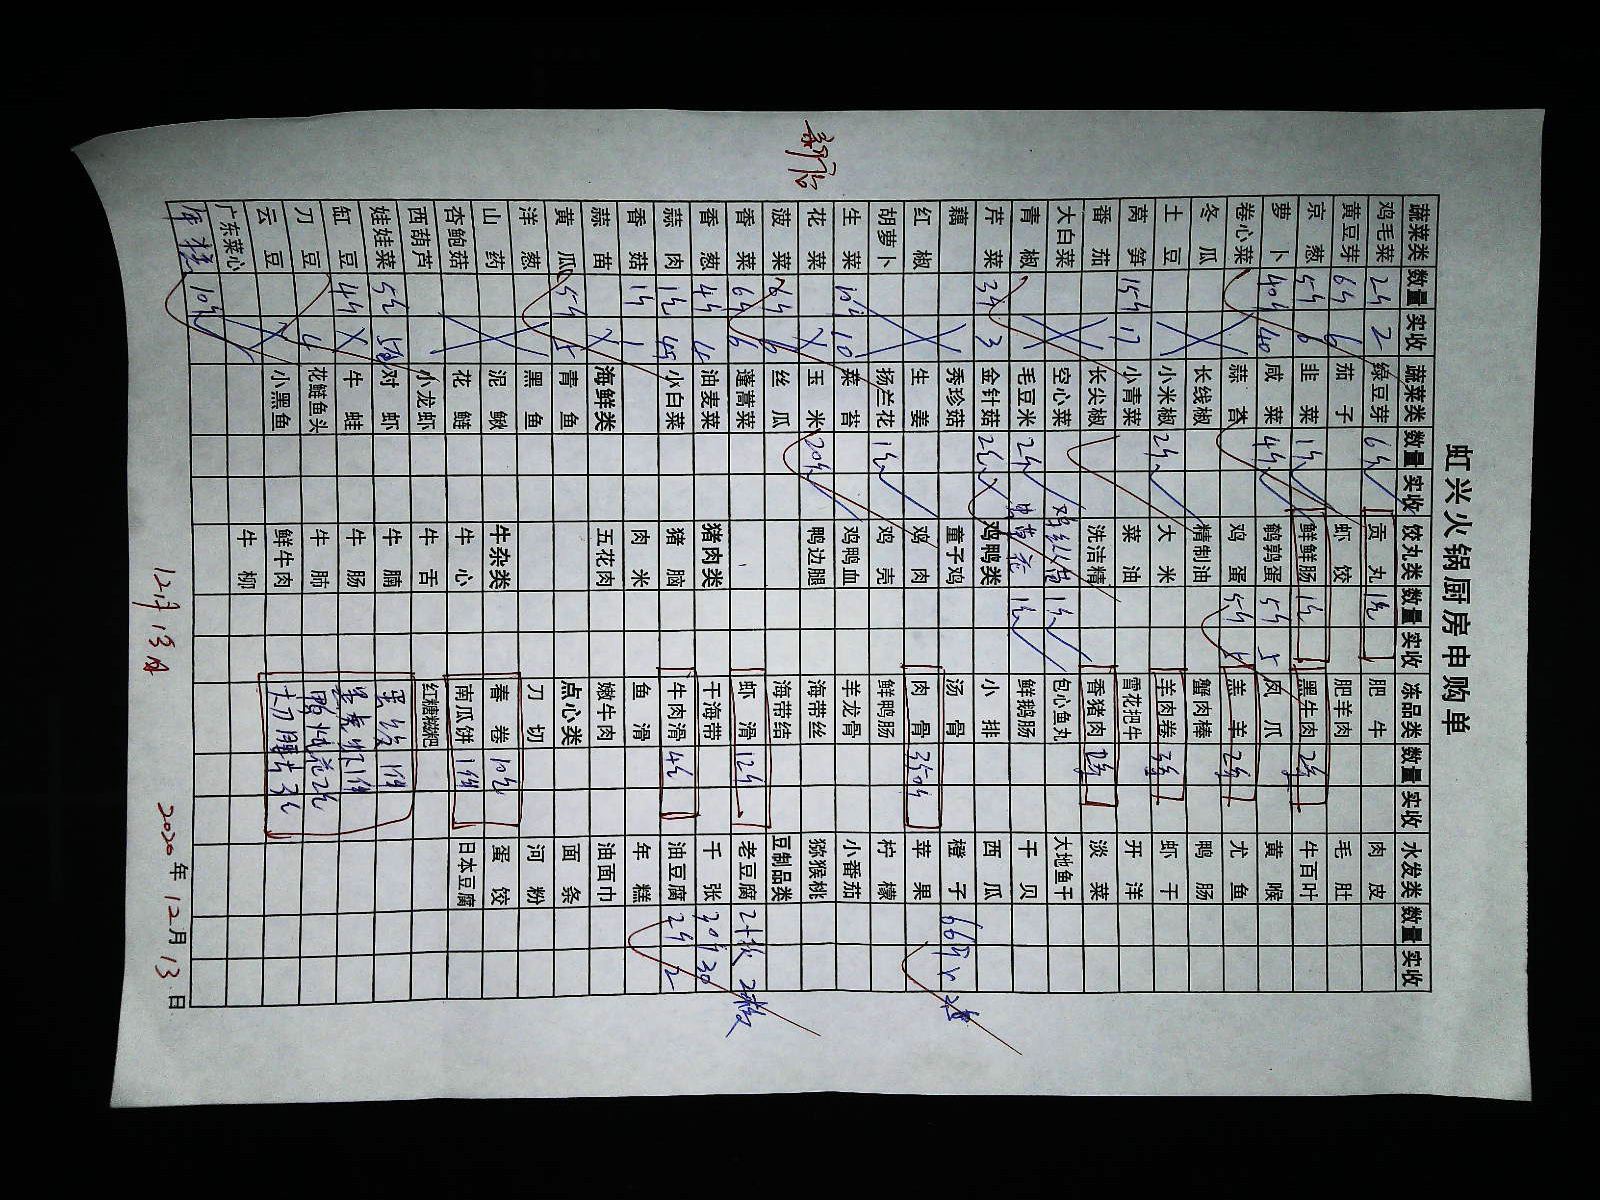 新店
虹兴火锅厨房申购单
蔬菜类 数量 实收 蔬菜类 数量 实收 饺丸类 数量 实收 冻品类 数量 实收 水发类 数量 实收
鸡毛菜 2斤 2 绿豆芽 6斤 贡丸 1包 肥牛 肉皮
黄豆芽 6斤 6 茄子 虾饺 肥羊肉 毛肚
京葱 5斤 6 韭菜 1斤 鲜鲜肠 1包 黑牛肉 2条 牛百叶
萝卜 40斤 40 咸菜 4斤 鹌鹑蛋 5斤 5 凤爪 黄喉
卷心菜 蒜苔 鸡蛋 5斤 5 羔羊 2条 尤鱼
冬瓜 长线椒 精制油 蟹肉棒 鸭肠
土豆 小米椒 2斤 大米 羊肉卷 3条 虾干
莴笋 15斤 17 小青菜 菜油 雪花把牛 开洋
番茄 长尖椒 洗洁精 香猪肉 淡菜
大白菜 空心菜 1包 包心鱼丸 大地鱼干
青椒 毛豆米 2斤 1包 鲜鹅肠 干贝
芹菜 3斤 3 金针菇 2包 鸡鸭类 小排 西瓜
藕 秀珍菇 童子鸡 汤骨 橙子
红椒 生姜 鸡肉 肉骨 350斤 苹果
胡萝卜 扬兰花 1包 鸡壳 鲜鸭肠 柠檬
生菜 10斤 10 菜苔 鸡鸭血 羊龙骨 小番茄
花菜 玉米 20斤 鸭边腿 海带丝 猕猴桃
菠菜 6斤 6 丝瓜 海带结 豆制品类
香菜 6斤 6 蓬蒿菜 虾滑 12包 老豆腐 2板 2板
香葱 4斤 4 油麦菜 猪肉类 干海带 千张 30斤 30
蒜肉 1包 小白菜 猪脑 牛肉滑 4包 油豆腐 2斤 2
香菇 1斤 1 肉米 鱼滑 年糕
蒜苗 海鲜类 五花肉 嫩牛肉 油面巾
黄瓜 5斤 5 青鱼 点心类 面条
洋葱 黑鱼 刀切 河粉
山药 泥鳅 牛杂类 春卷 10包 蛋饺
杏鲍菇 花鲢 牛心 南瓜饼 1件 日本豆腐
西葫芦 小龙虾 牛舌 红糖糍粑
娃娃菜 5包 对虾 牛腩 蛋饺 1件
缸豆 4斤 牛蛙 牛肠
刀豆 4 花鲢鱼头 牛肺
云豆 小黑鱼 鲜牛肉
广东菜心 牛柳
10包
12月13日
2020年12月13日